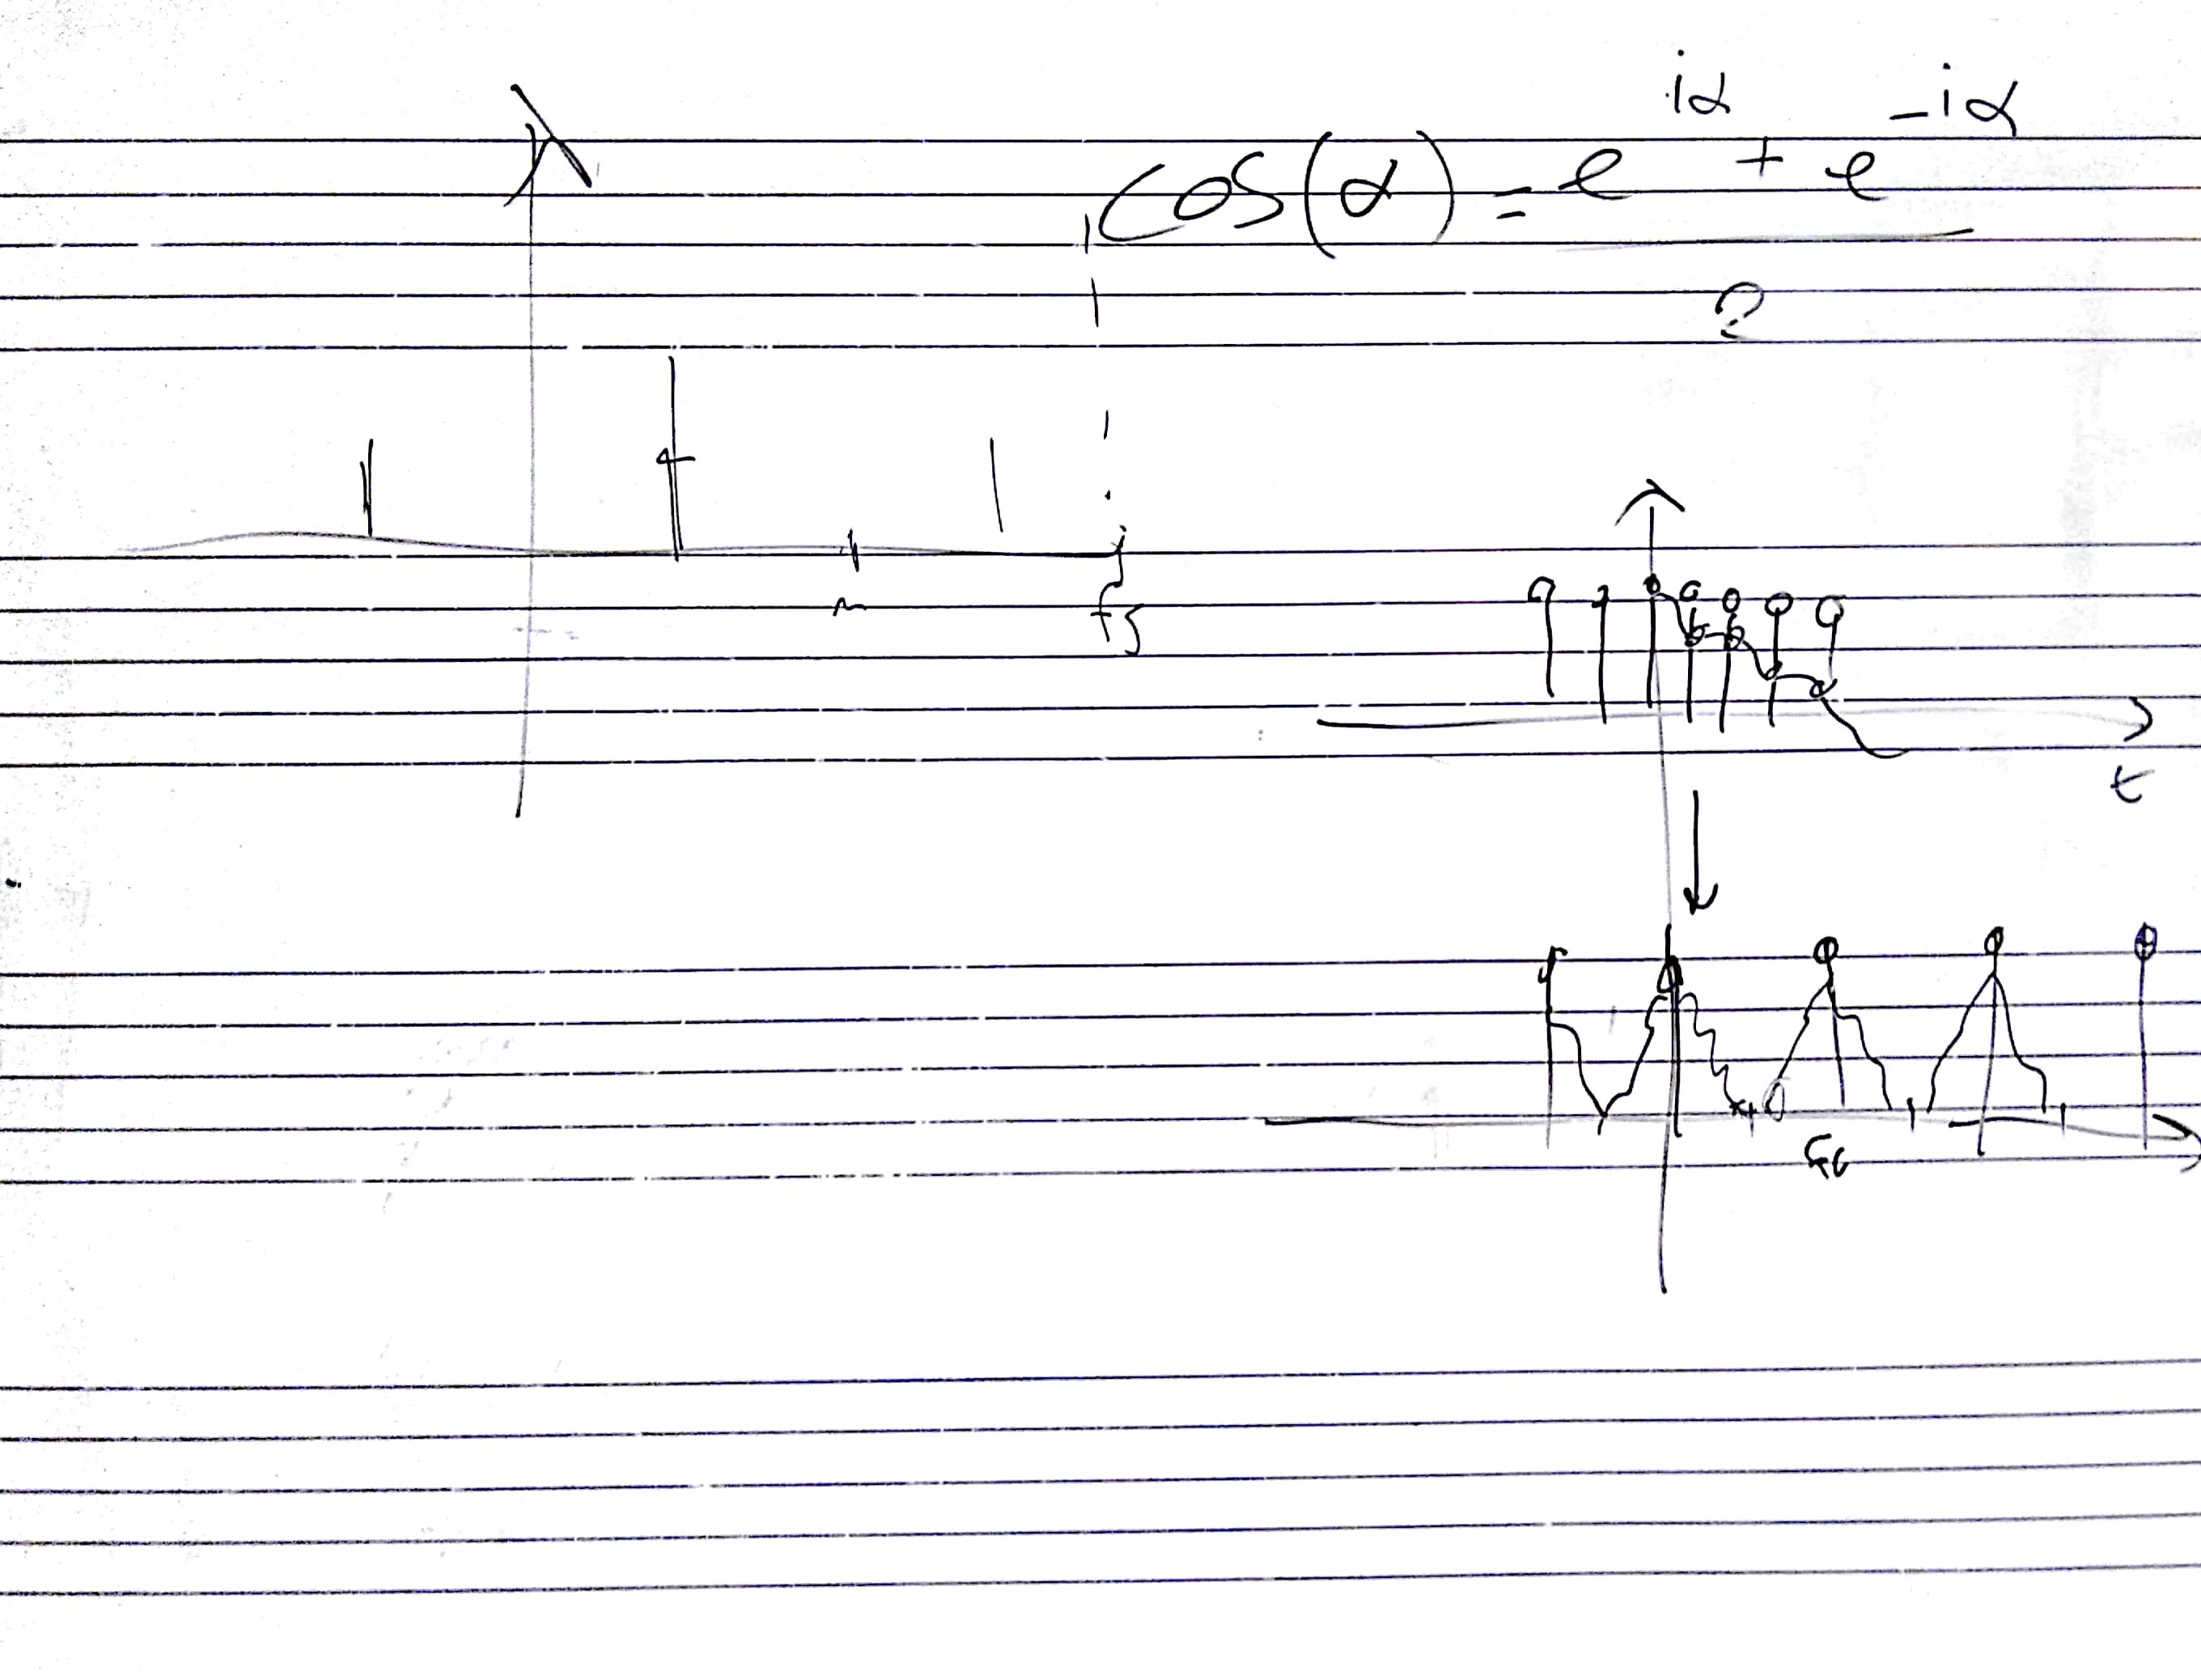 cos(α) = e^{iα} + e^{-iα}
2
fs
t